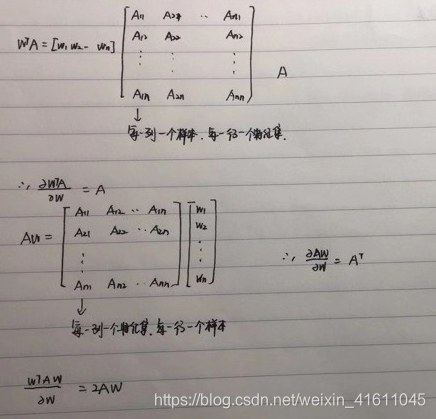 WᵀA = [w₁ w₂ -- wₙ] [ A₁₁ A₂₁ ·· Aₙ₁
A₁₂ A₂₂ Aₙ₂
⋮ ⋮ ⋮
A₁ₙ A₂ₙ Aₙₙ ] A
↓
每一列一个样本、每一行一个特征集.
∴ ∂WᵀA / ∂W = A
AW = [ A₁₁ A₁₂ ·· A₁ₙ
A₂₁ A₂₂ ·· A₂ₙ
⋮
Aₙ₁ Aₙ₂ ·· Aₙₙ ] [ w₁ w₂ ⋮ wₙ ] ∴ ∂AW / ∂W = Aᵀ
↓
每一列一个特征集、每一行一个样本
WᵀAW / ∂W = 2AW
https://blog.csdn.net/weixin_41611045